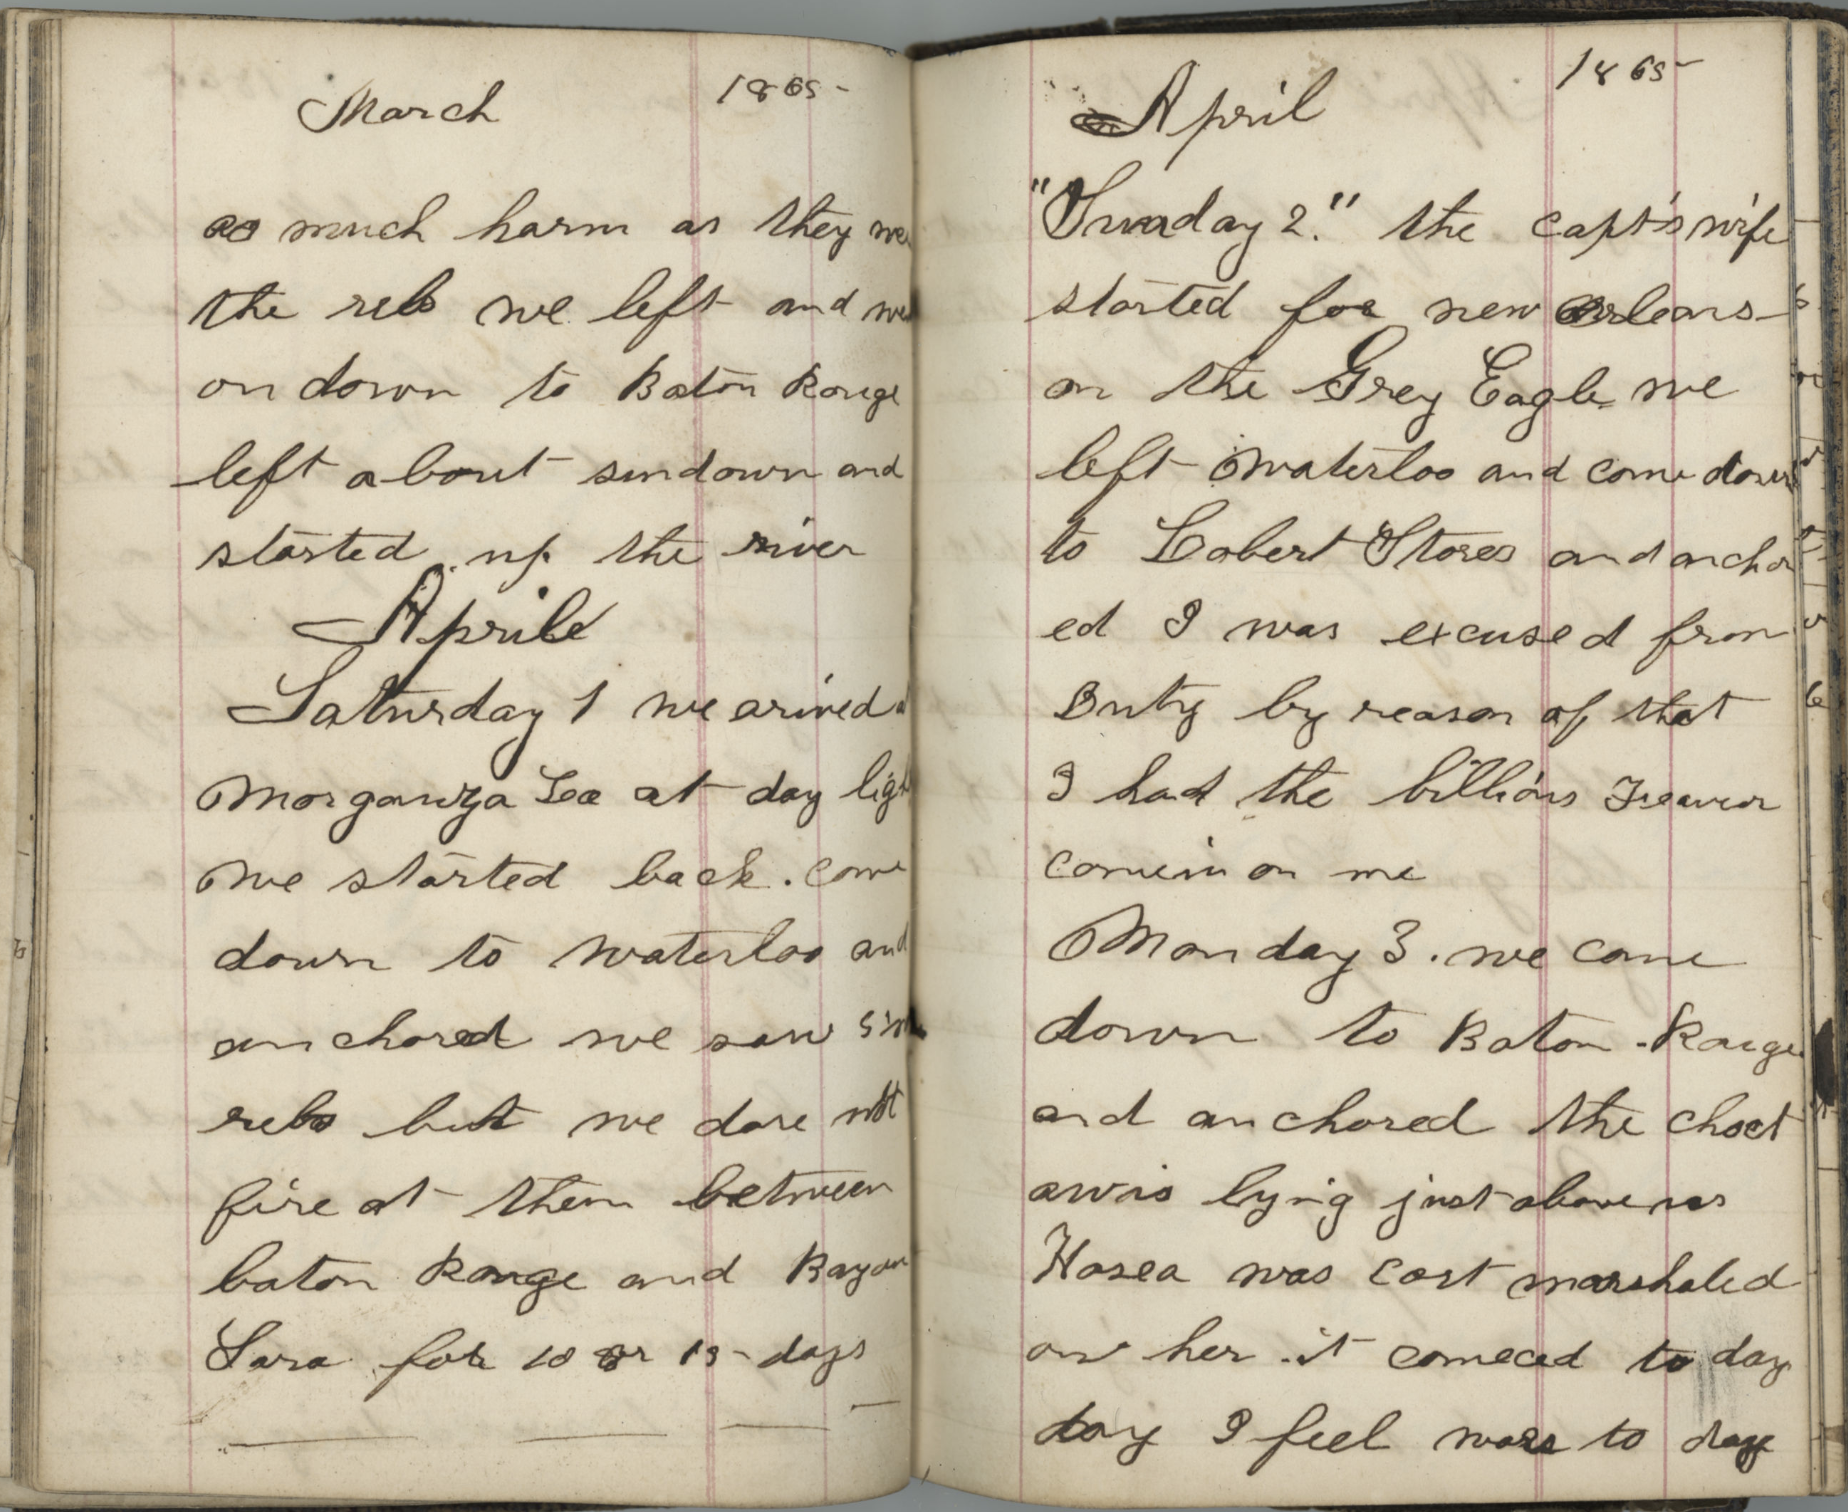 March 1865-
as much harm as they
the rebs we left and
on down to Baton Rouge
left about sundown and
started up the river
Aprile
Saturday 1 we arived
Morganza Lea at day light
we started back. come
down to Waterloo and
anchored we saw
rebs but we dare not
fire at them between
baton Rouge and Bayou
Sara for 10 or 15 days
April 1865-
"Sunday 2." the capt's wife
started for new orleans
on the Grey Eagle we
left Waterloo and come down
to Lobert Stores and anchor
ed I was excused from
Duty by reason of that
I had the billions Feaver
comein on me
Monday 3. we come
down to Baton Rouge
and anchored the choct
awis lying just above us
Hosea was cort marshaled
on her. it comeced to day
day I feel worse to day